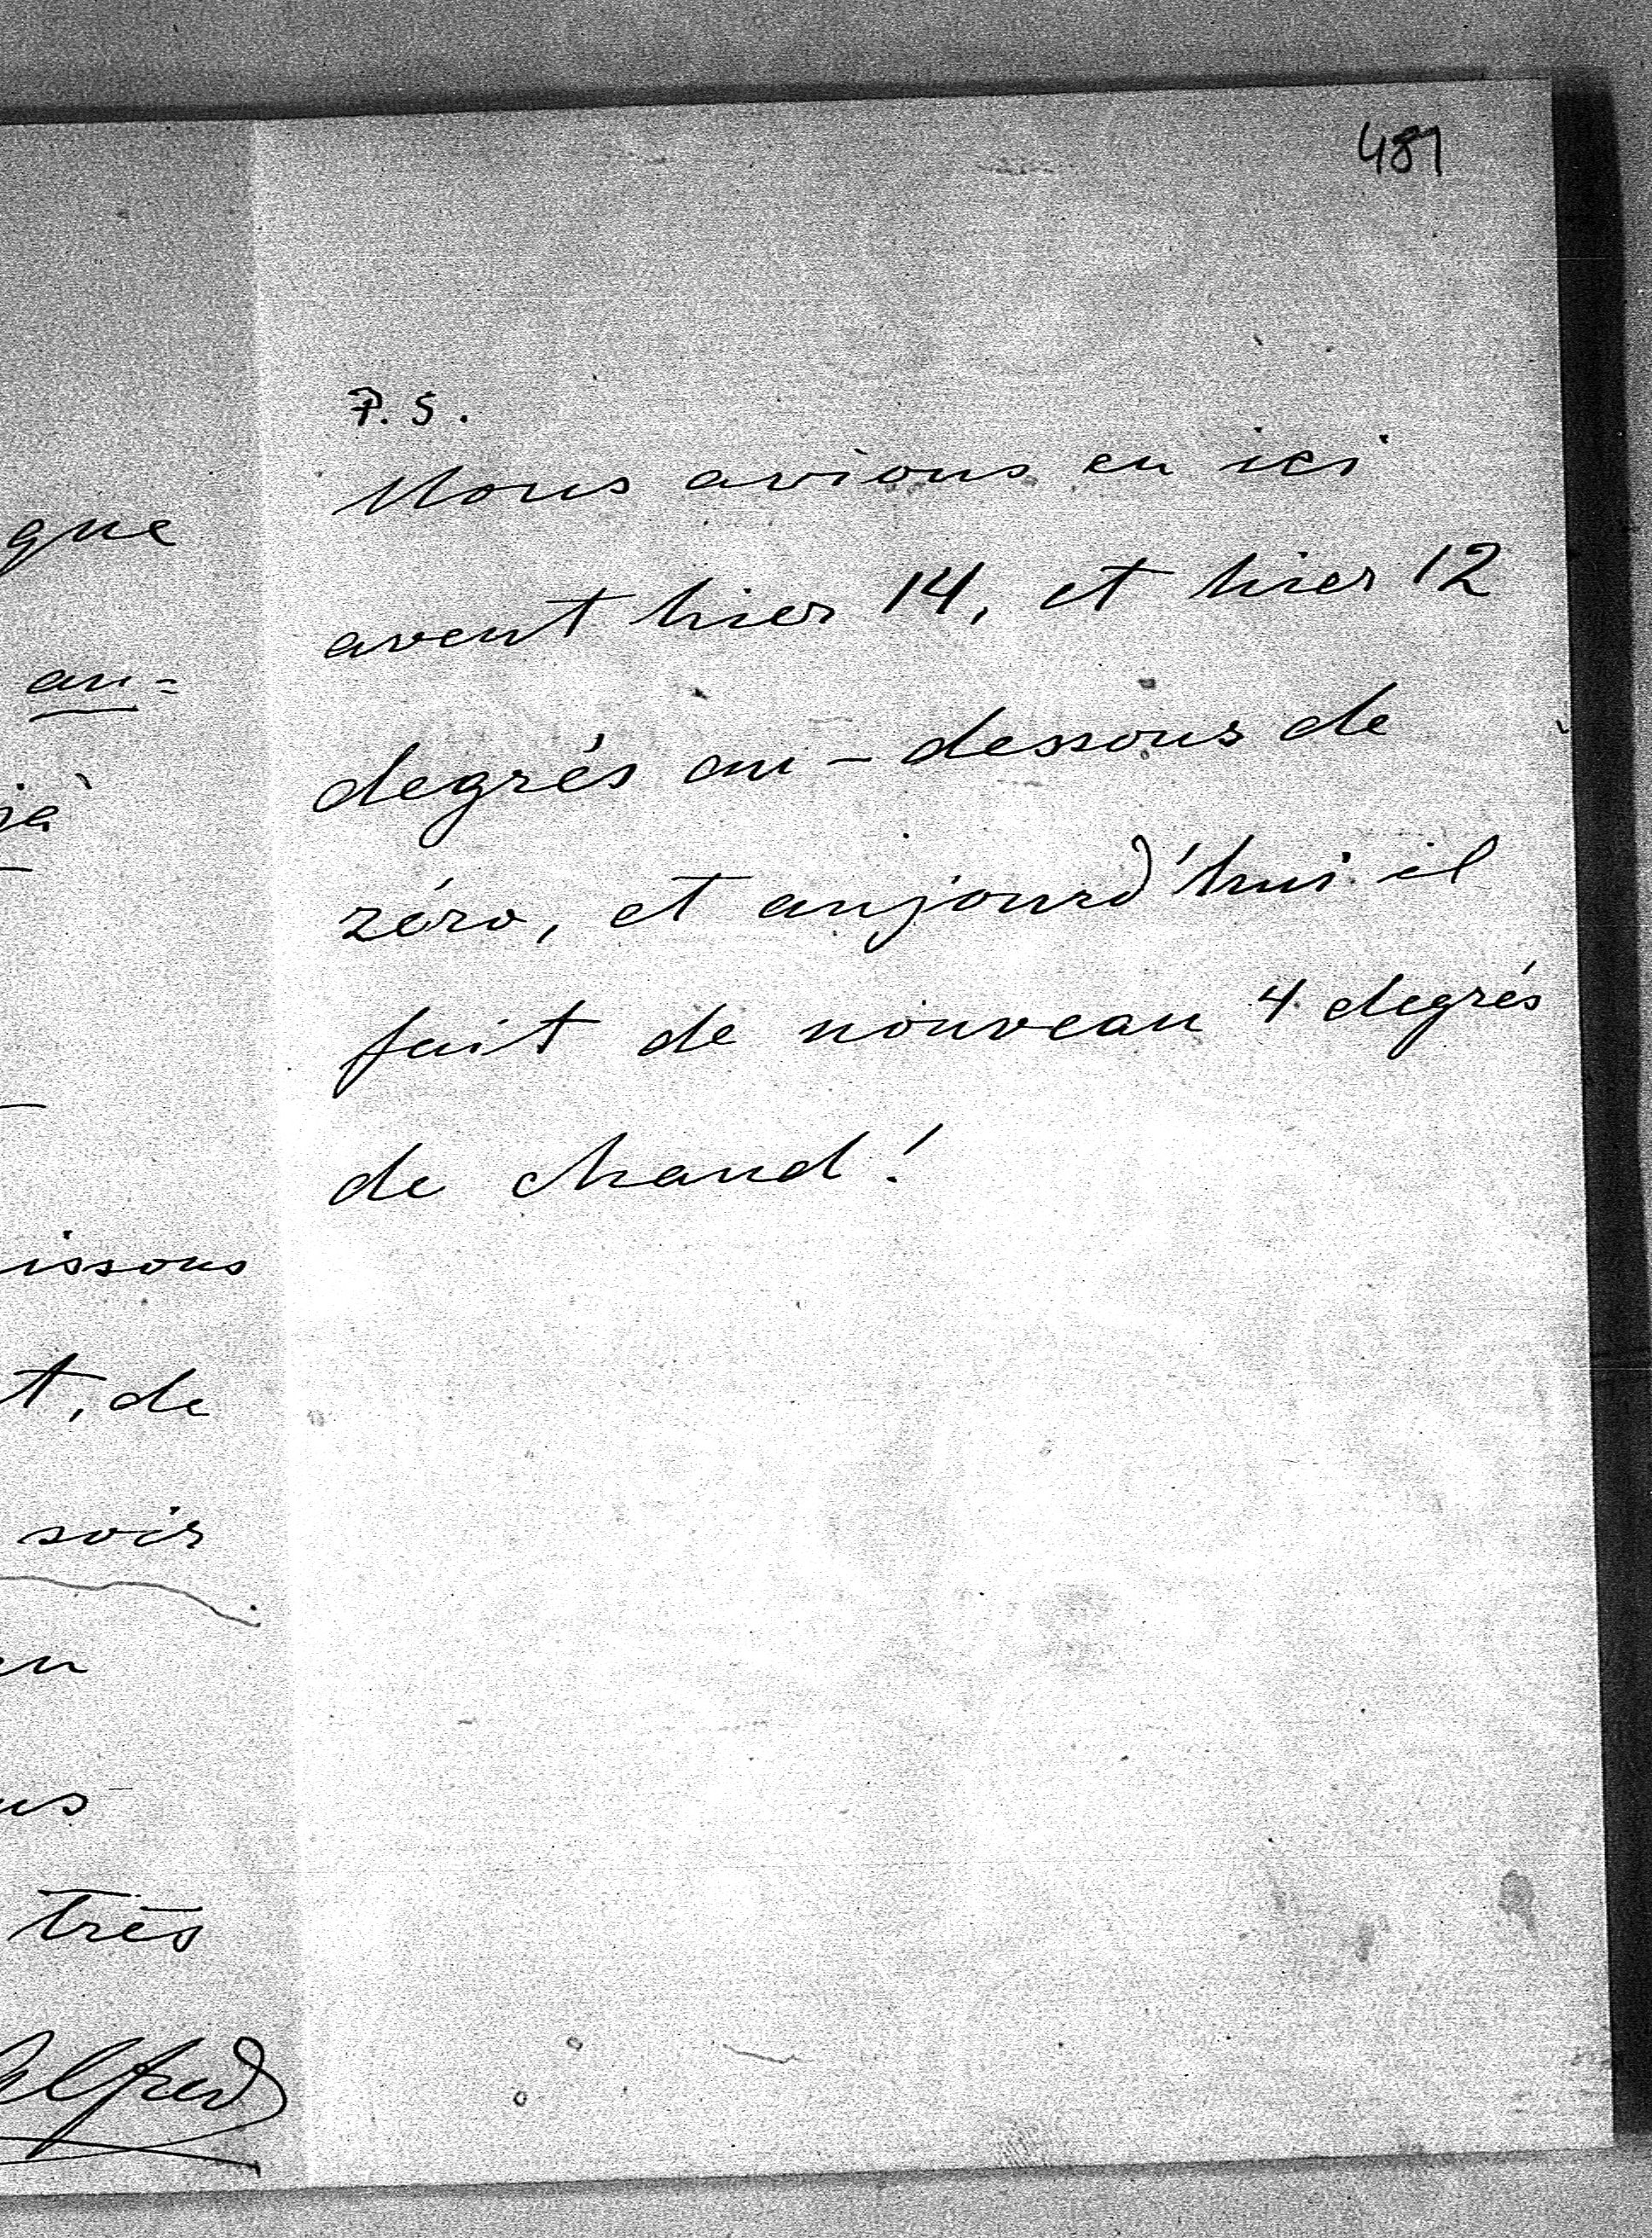 que
au=
jà
issons
t, de
soir
en
us
très
Alfred
481
P.S.
Nous avions eu ici
avent hier 14, et hier 12
degrés au-dessous de
zéro, et aujourd'hui il
fait de nouveau 4 degrés
de chaud!